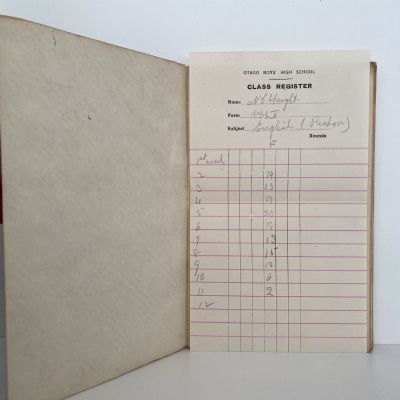 OTAGO BOYS' HIGH SCHOOL
CLASS REGISTER
Name N C Haight
Form
Subject English (Rector)
Rounds
F
1st week
2 19
3 13
4 17
5 20
6 18
7 13
8 15
9 12
10 6
11 2
12